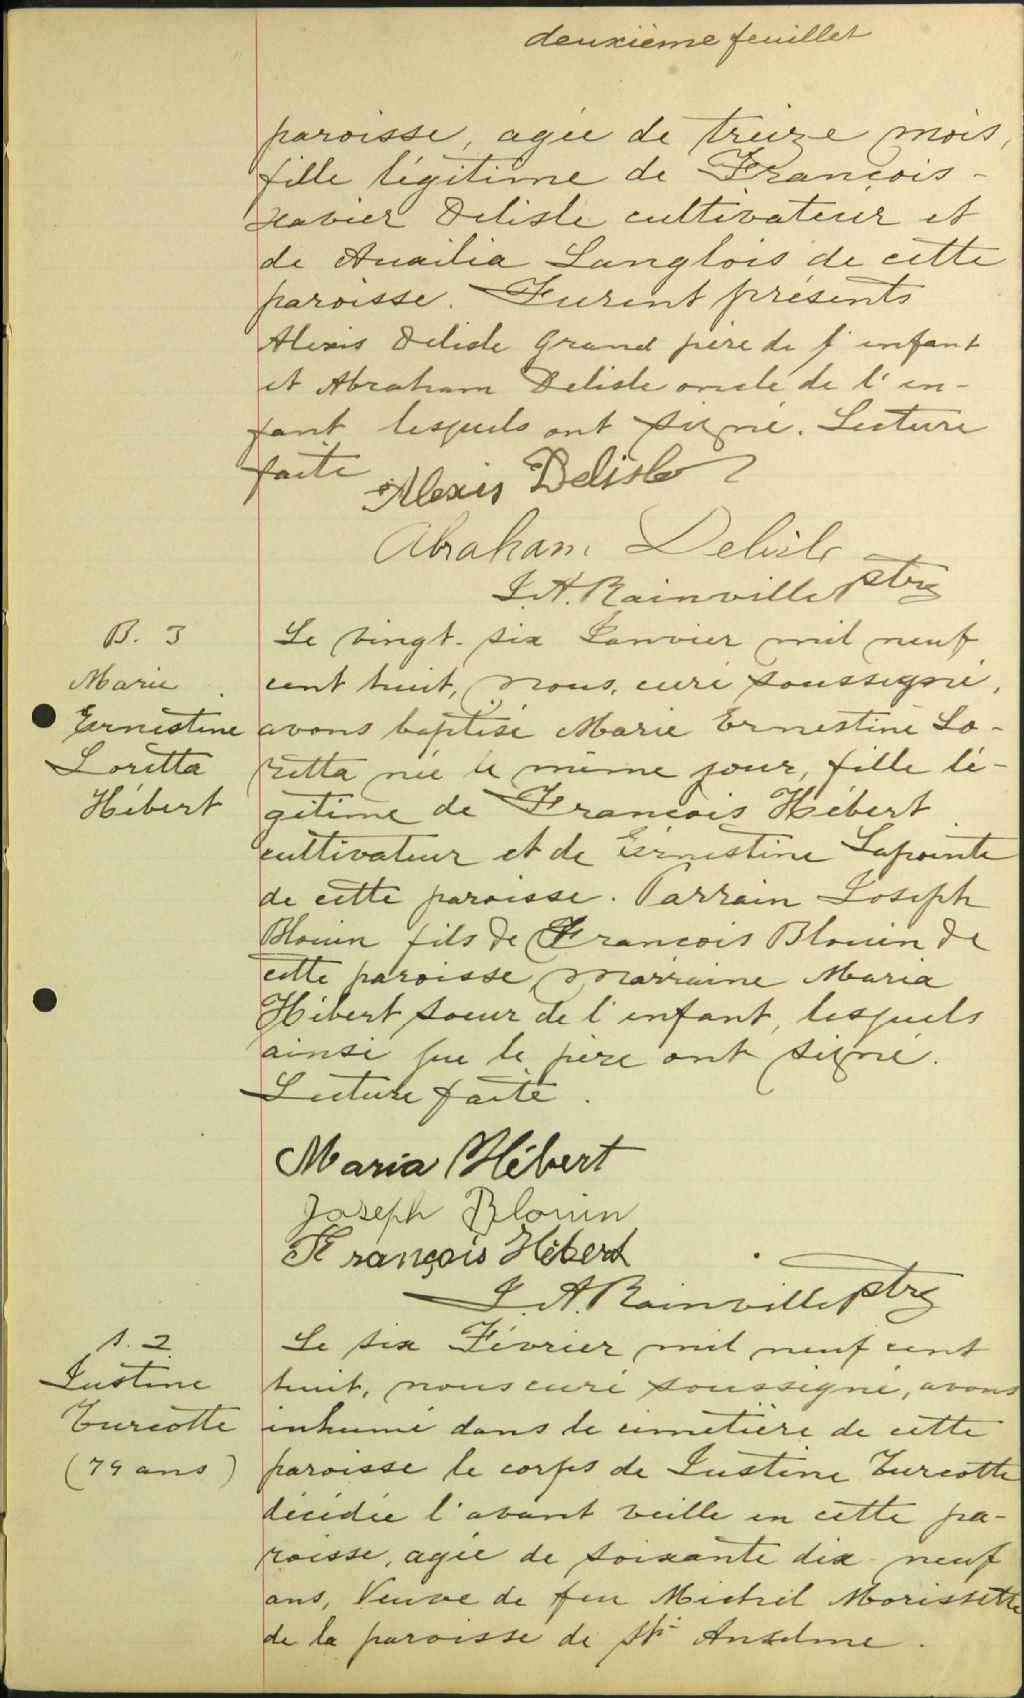 deuxième feuillet
paroisse, agée de treize mois,
fille légitime de François-
Xavier Delisle cultivateur et
de Auxilia Langlois de cette
paroisse. Furent présents
Alexis Delisle Grand père de l'enfant
et Abraham Delisle oncle de l'en-
fant lesquels ont signé. Lecture
faite
Alexis Delisle
Abraham Delisle
J. A. Rainville ptre
B. 3
Marie
Ernestine
Loretta
Hébert
Le vingt-six Janvier mil neuf
cent huit, nous, curé soussigné,
avons baptisé Marie Ernestine Lo-
retta née le même jour, fille lé-
gitime de François Hébert
cultivateur et de Ernestine Lapointe
de cette paroisse. Parrain Joseph
Blouin fils de François Blouin de
cette paroisse, marraine Maria
Hébert soeur de l'enfant, lesquels
ainsi que le père ont signé.
Lecture faite.
Maria Hébert
Joseph Blouin
François Hébert
J. A. Rainville ptre
S. 2
Justine
Turcotte
(79 ans)
Le six Février mil neuf cent
huit, nous curé soussigné, avons
inhumé dans le cimetière de cette
paroisse le corps de Justine Turcotte
décédée l'avant veille en cette pa-
roisse, agée de soixante dix neuf
ans, Veuve de feu Michel Morissette
de la paroisse de St Anselme.